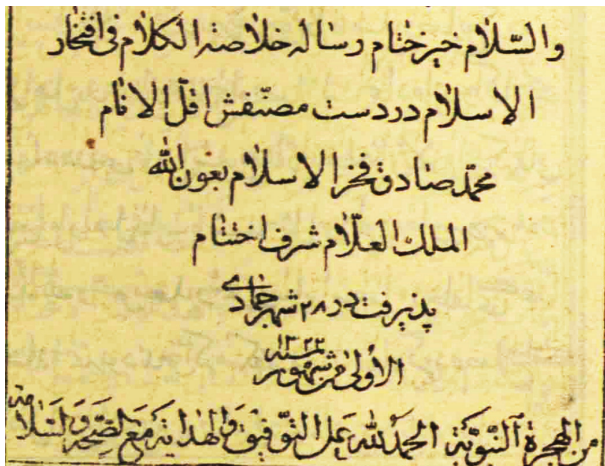 والسّلام خیر ختام رساله خلاصة الکلام فی افتخار
الاسلام در دست مصنّفش اقلّ الانام
محمّد صادق فخر الاسلام بعون الله
الملک العلّام شرف اختتام
پذیرفت در ۲۸ شهر جمادی
الاولی من شهور سنه ۱۳۲۲
من الهجرة النّبویّة الحمد لله علی التّوفیق والهدایة مع الصّحّة والسّلامة